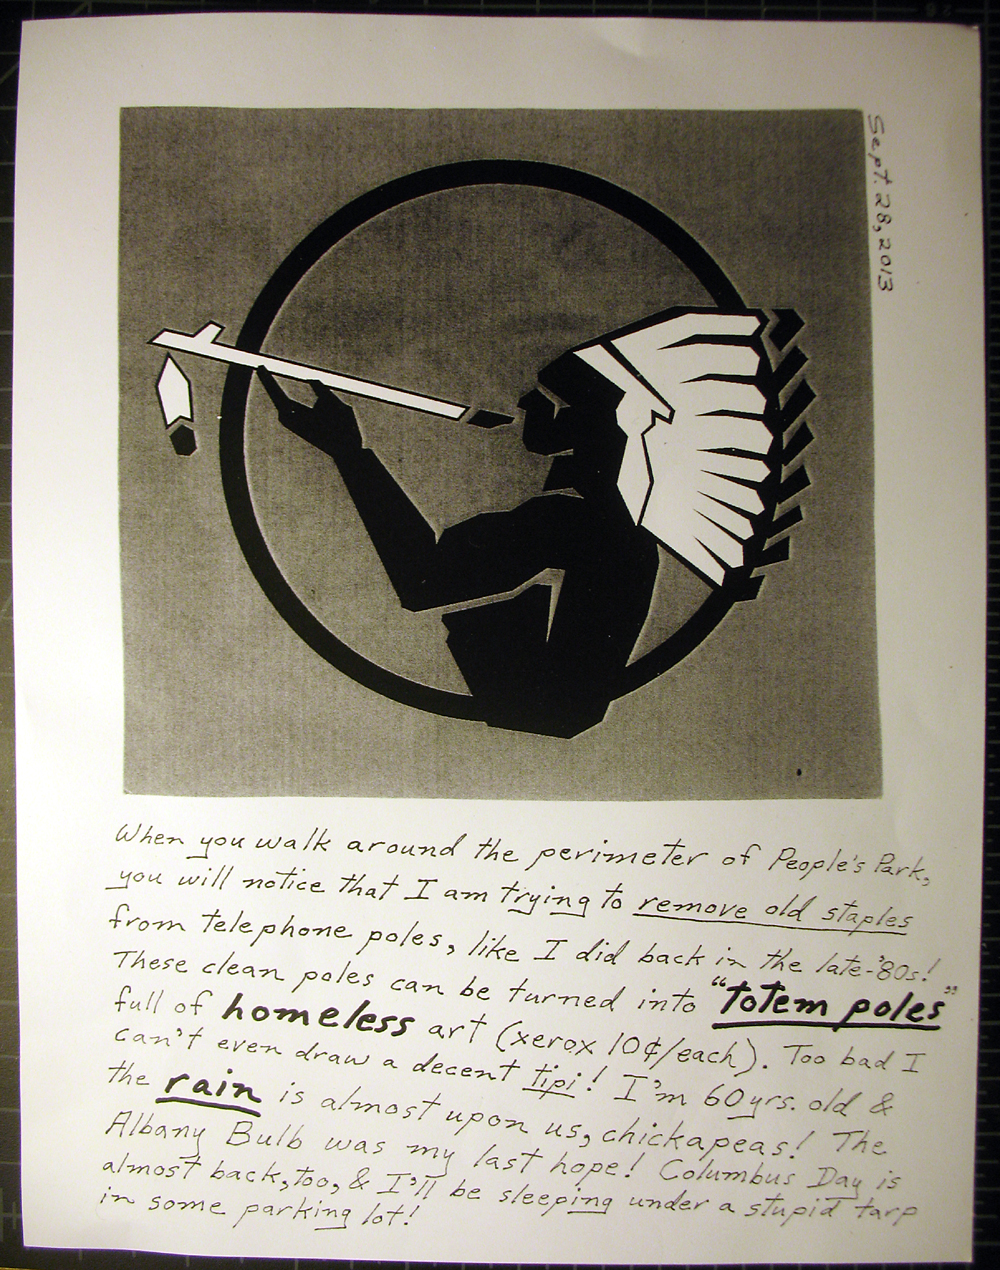 Sept. 28, 2013
When you walk around the perimeter of People's Park,
you will notice that I am trying to remove old staples
from telephone poles, like I did back in the late-'80s!
These clean poles can be turned into "totem poles"
full of homeless art (xerox 10¢/each). Too bad I
can't even draw a decent tipi! I'm 60yrs. old &
the rain is almost upon us, chickapeas! The
Albany Bulb was my last hope! Columbus Day is
almost back, too, & I'll be sleeping under a stupid tarp
in some parking lot!